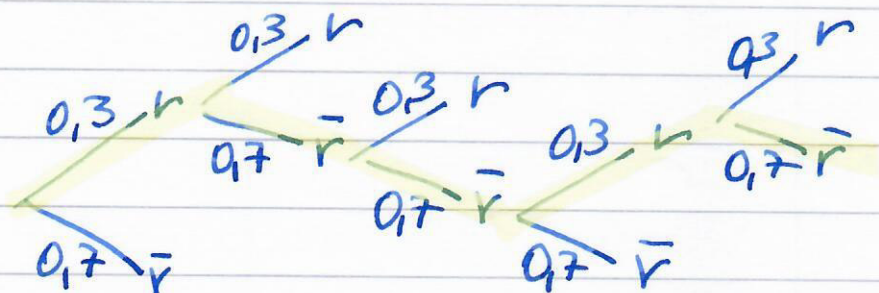 0,3 r
0,3 r
0,3 r
0,3 r
0,7 r̄
0,3 r
0,7 r̄
0,7 r̄
0,7 r̄
0,7 r̄